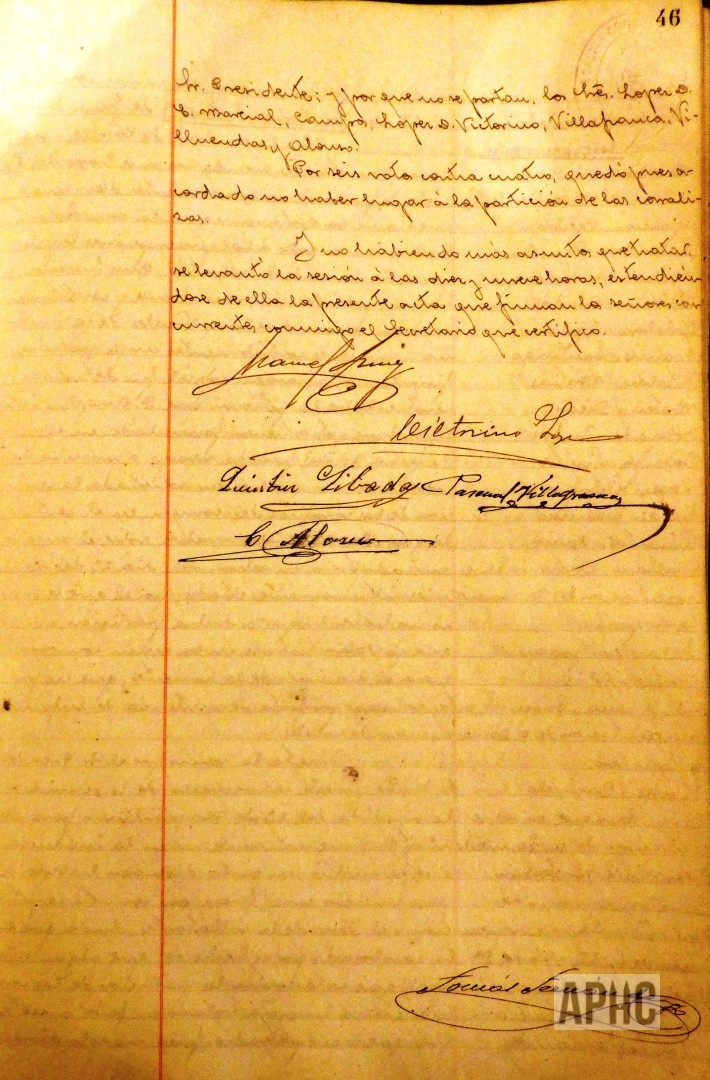 46
Sr. Presidente; y por que no se partan, los Srés. Lopez D.
E. Marcial, Campos, Lopez D. Victorino, Villafranca, Vi-
lluendas y Alonso.
Por seis votos contra cuatro, quedó pues a-
cordado no haber lugar á la partición de las corrali-
zas.
Y no habiendo más asuntos que tratar,
se levantó la sesión á las diez y nueve horas, estendién-
dose de ella la presente acta que firman los señores con-
currentes conmigo el Secretario que certifico.
Manuel
Victorino Lopez
Quintin Pascual Villafranca
C Alonso
Tomás
APHC